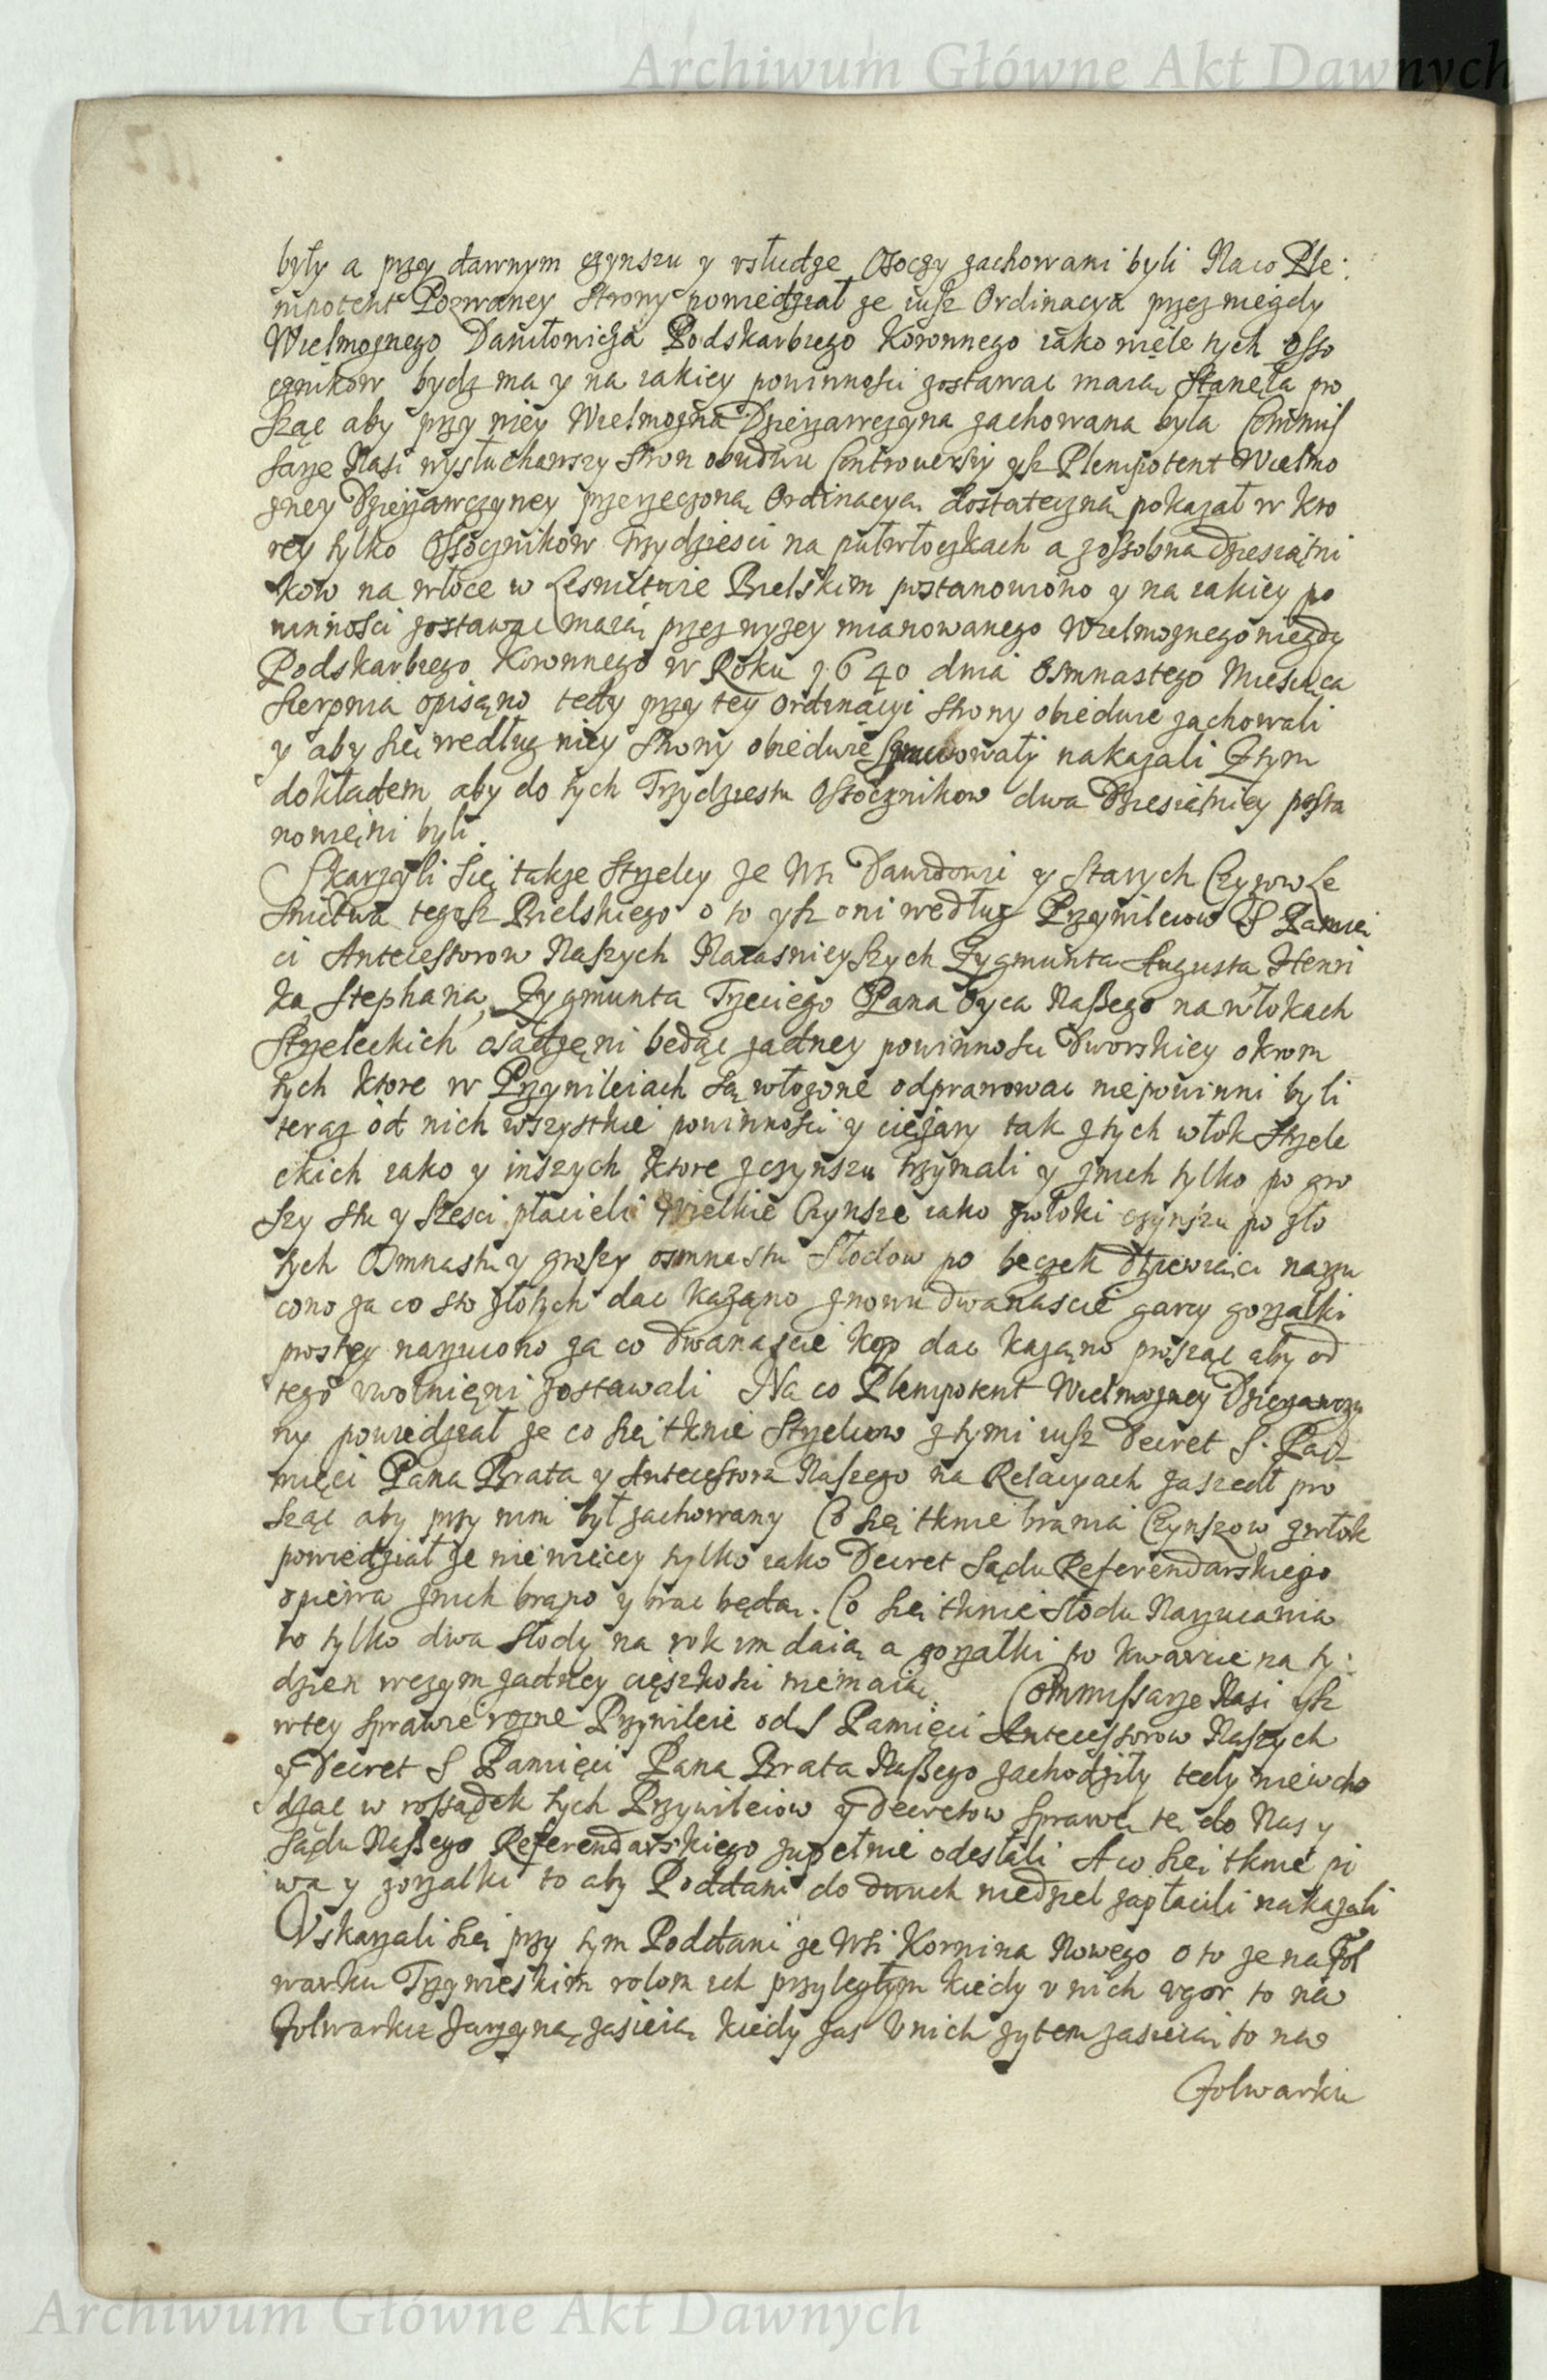 Archiwum Główne Akt Dawnych
były a przy dawnym czynszu y vsłudze Osoczy zachowani byli Na co Ple:
nipotent Pozwaney Strony powiedział ze iusz Ordinacya przez niegdy
Wielmoznego Daniłowicza Podskarbiego Koronnego iako wiele tych Osso
cznikow bydz ma y na iakiey powinnosci zostawac maią Stanęła pro
sząc aby przy niey Wielmozna Dzierzawczyna zachowana była Commis
sarze Nasi wysłuchawszy stron obudwu Controversiy ysz Plenipotent Wielmo
zney Dzierzawczyney przerzeczoną Ordinacyą dostateczną pokazał w kto
rey tylko Ossocznikow Trzydziesci na pułwłoczkach a zossobna Dziesiątni
kow na włoce w Lesnictwie Bielskim postanowiono y na iakiey po
winnosci zostawac maią przez wyzey mianowanego Wielmoznego niegdy
Podskarbiego Koronnego w Roku 1640 dnia Osmnastego Miesiąca
Sierpnia opisano tedy przy tey Ordinacyi strony obiedwie zachowali
y aby się według niey Strony obiedwie sprawowały nakazali Z tym
dokładem aby do tych Trzydziestu Ossocznikow dwa Dziesiątnicy posta
nowieni byli.
Skarzyli się takze Strzelcy ze Wsi Dawidowi y Starych Czyzow Le
snictwa tegosz Bielskiego o to ysz oni według Przywileiow S Pamię
ci Antecessorow Naszych Naiasnieyszych Zygmunta Augusta Henri
ka Stephana, Zygmunta Trzeciego Pana Oyca Naszego na włokach
Strzeleckich osadzeni będąc zadney powinnosci Dworskiey okrom
tych ktore w Przywileiach są włozone odprawowac niepowinni byli
teraz od nich wszystkie powinnosci y cięzary tak z tych włok Strzele
ckich iako y inszych ktore z czynszu trzymali y znich tylko po gro
szy stu y szesci płacieli Wielkie Czynsze iako z włoki czynszu po zło
tych Osmnastu y groszy osmnastu Słodow po beczek dziewiąci narzu
cono za co sto złotych dac kazano znowu dwanascie garcy gorzałki
prostey narzucono za co dwanascie kop dac kazano prosząc aby od
tego vwolnieni zostawali Na co Plenipotent Wielmozney Dzierzawczy
ny powiedział ze co się tknie Strzelcow z tymi iusz Decret S. Pa-
mięci Pana Brata y Antecessora Naszego na Relacyach zaszedł pro
sząc aby przy nim był zachowany Co się tknie brania Czynszow z włok
powiedział ze nie więcey tylko iako Decret Sądu Referendarskiego
opiewa znich brano y brac będą. Co się tknie słodu Narzucania
to tylko dwa słody na rok im daią a gorzałki po kwarcie na ty:
dzien wczym zadney cięszkosci niemaią. Commissarze Nasi ysz
wtey sprawie rozne Przywileie od S Pamięci Antecessorow Naszych
y Decret S Pamięci Pana Brata Naszego zachodziły tedy niewcho
dząc w rossądek tych Przywileiow y Decretow sprawę tę do Nas y
Sądu Naszego Referendarskiego zupełnie odesłali A co się tknie pi
wa y gorzałki to aby Poddani do dwuch niedziel zapłacili nakazali
Vskarzali się przy tym Poddani ze Wsi Kornina Nowego o to ze na Fol
warku Trzywieskim rolom ich przyległym kiedy v nich vgor to na
Folwarku Jarzyną zasieią kiedy zas v nich zytem zasieią to na
Folwarku
Archiwum Główne Akt Dawnych